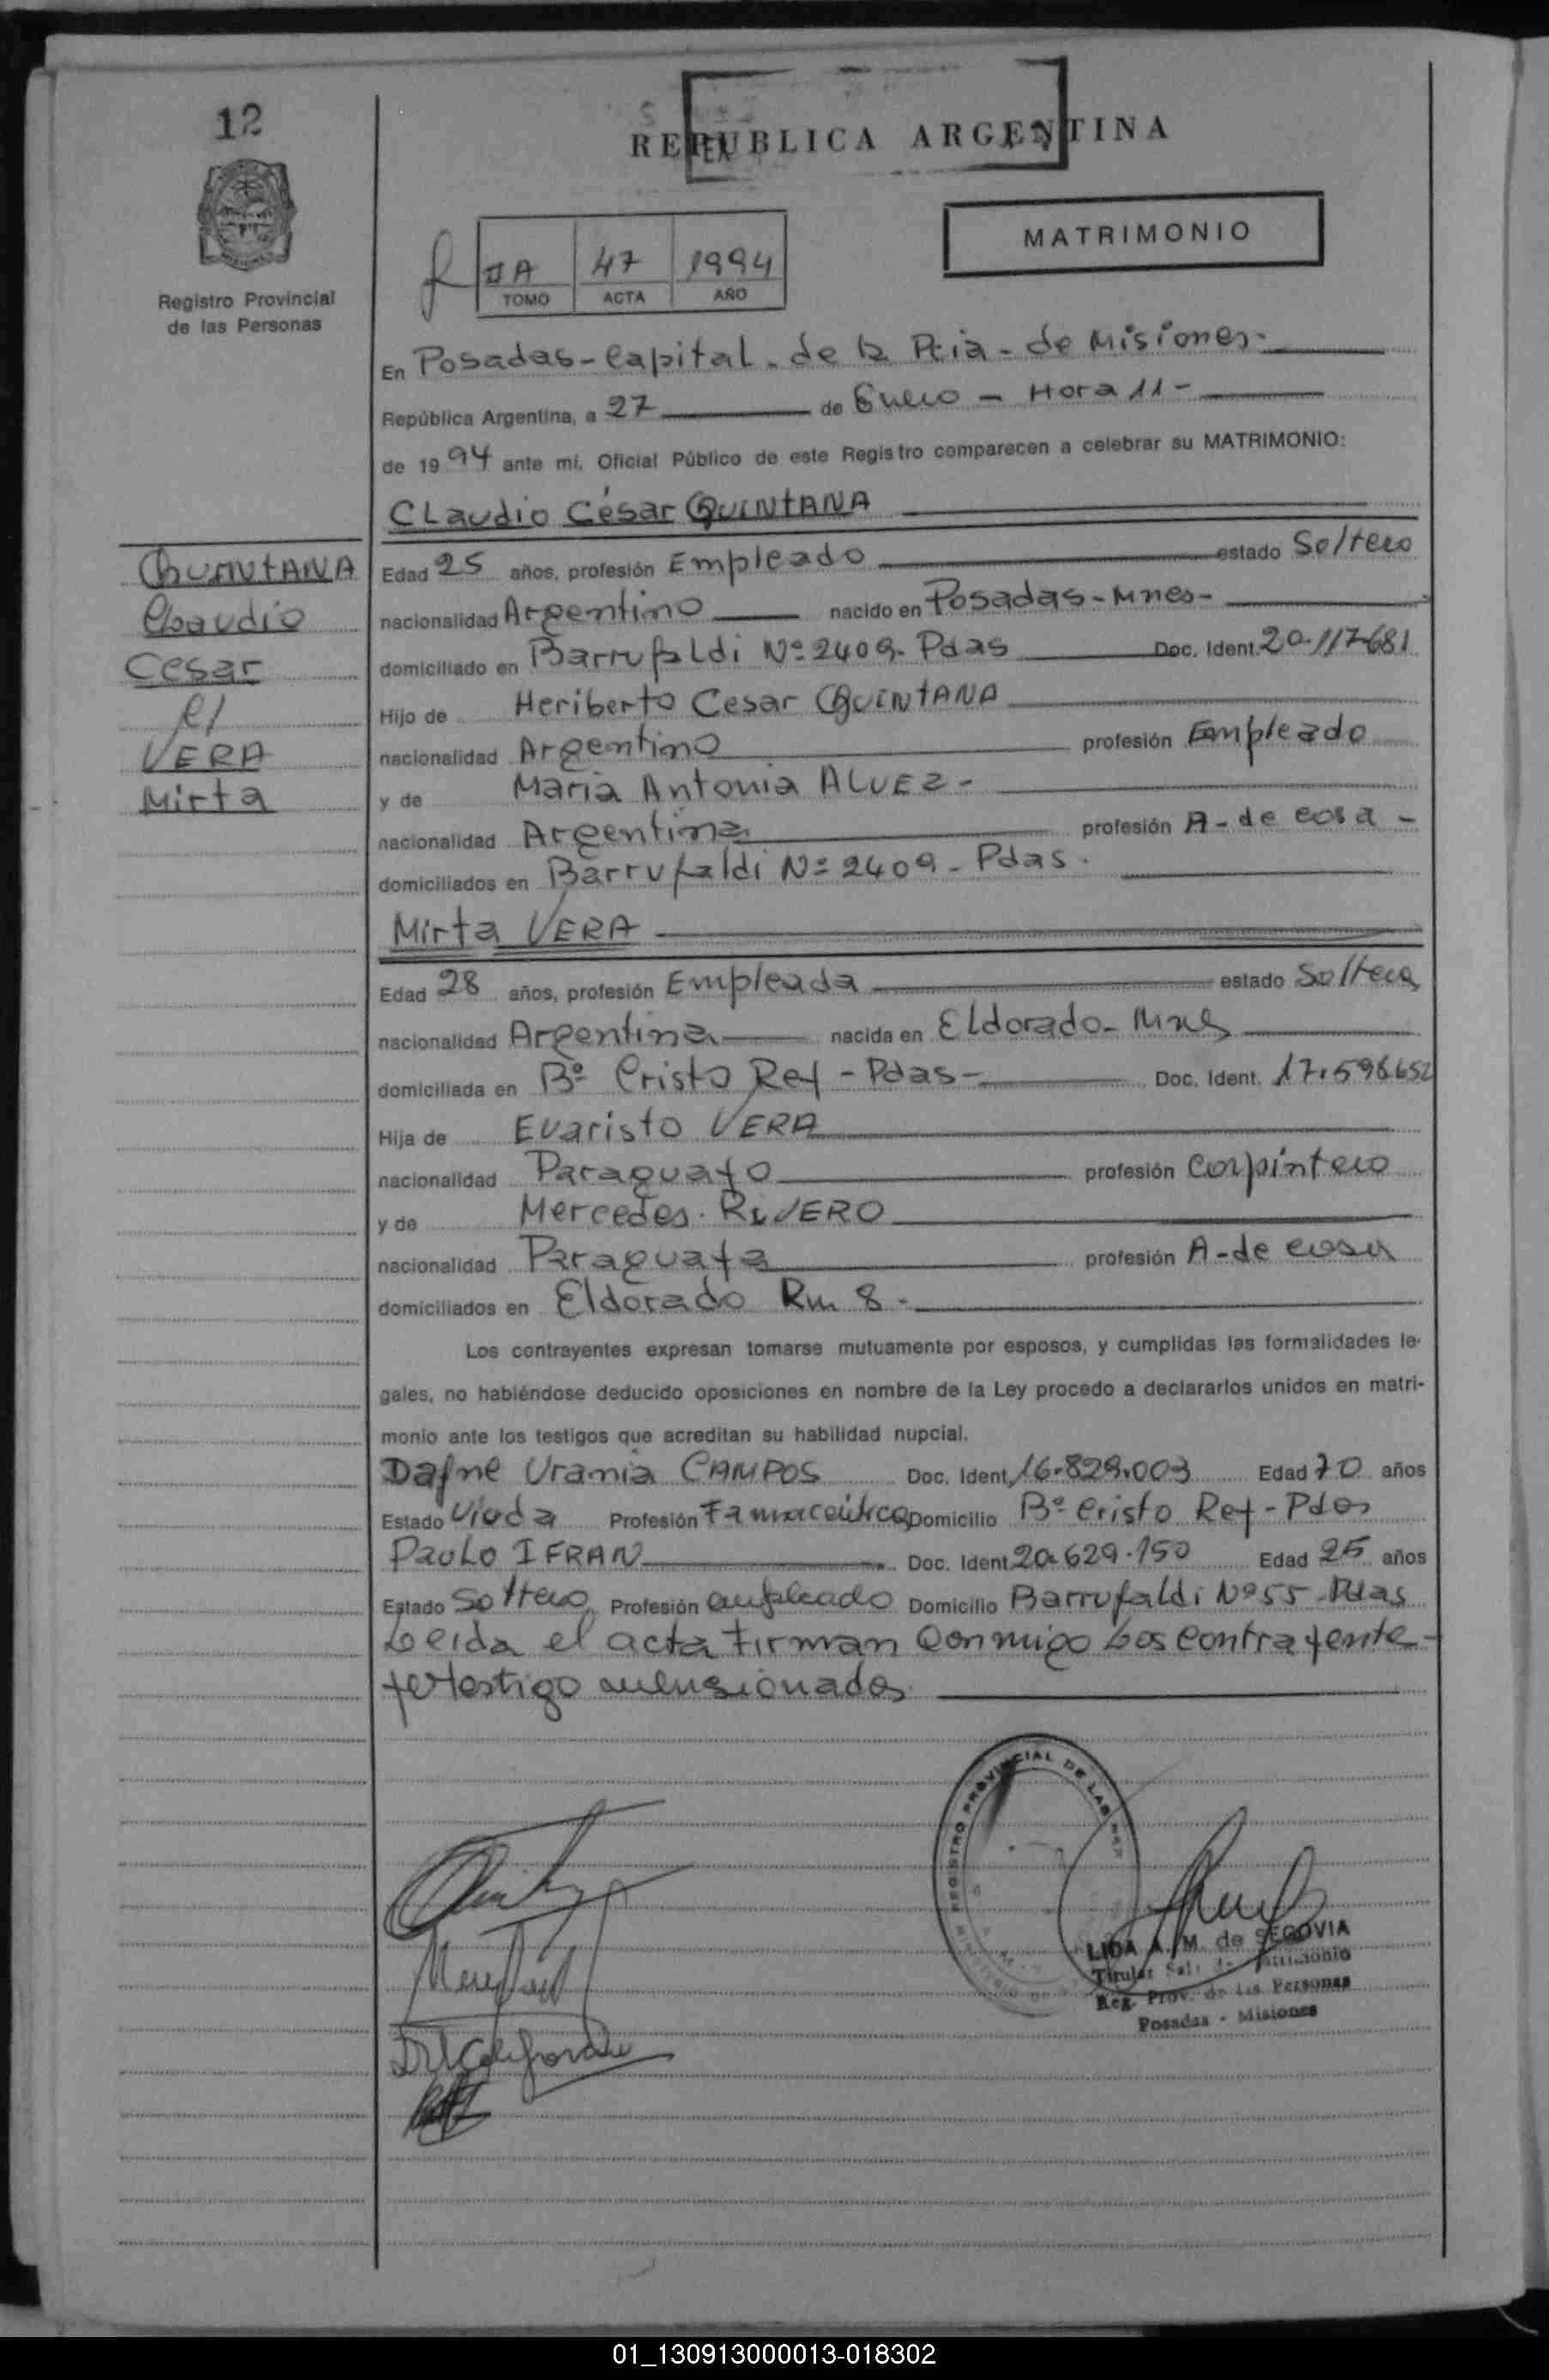 12
REPUBLICA ARGENTINA
MATRIMONIO
Registro Provincial
de las Personas
IIA 47 1994
TOMO ACTA AÑO
En Posadas - Capital - de la Pcia - de Misiones -
República Argentina, a 27 de Enero - Hora 11 -
de 1994 ante mi, Oficial Público de este Registro comparecen a celebrar su MATRIMONIO:
Claudio César QUINTANA
QUINTANA
Claudio
Cesar
c/
VERA
Mirta
Edad 25 años, profesión Empleado estado Soltero
nacionalidad Argentino nacido en Posadas - Mnes -
domiciliado en Barrufaldi Nº 2409 - Pdas Doc. Ident. 20.117.681
Hijo de Heriberto Cesar QUINTANA
nacionalidad Argentino profesión Empleado
y de Maria Antonia ALVEZ -
nacionalidad Argentina profesión A - de casa -
domiciliados en Barrufaldi Nº 2409 - Pdas.
Mirta VERA
Edad 28 años, profesión Empleada estado Soltera
nacionalidad Argentina nacida en Eldorado - Mnes
domiciliada en Bº Cristo Rey - Pdas - Doc. Ident. 17.596.652
Hija de Evaristo VERA
nacionalidad Paraguayo profesión Carpintero
y de Mercedes RIVERO
nacionalidad Paraguaya profesión A - de casa
domiciliados en Eldorado Km 8 -
Los contrayentes expresan tomarse mutuamente por esposos, y cumplidas las formalidades le-
gales, no habiéndose deducido oposiciones en nombre de la Ley procedo a declararlos unidos en matri-
monio ante los testigos que acreditan su habilidad nupcial.
Dafne Urania CAMPOS Doc. Ident. 16.829.003 Edad 70 años
Estado Viuda Profesión Farmaceútica Domicilio Bº Cristo Rey - Pdas
Paulo IFRAN Doc. Ident. 20.629.150 Edad 25 años
Estado Soltero Profesión empleado Domicilio Barrufaldi Nº 55 - Pdas
Leida el acta firman conmigo los contrayente -
y testigo mensionados
REGISTRO PROVINCIAL DE LAS PER
LIDA A. M. de SEGOVIA
Titular Sala de Matrimonio
Reg. Prov. de las Personas
Posadas - Misiones
01_130913000013-018302